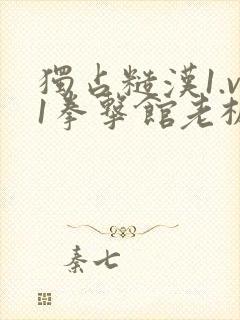 獨占糙漢1.v
1拳擊館老板
秦七